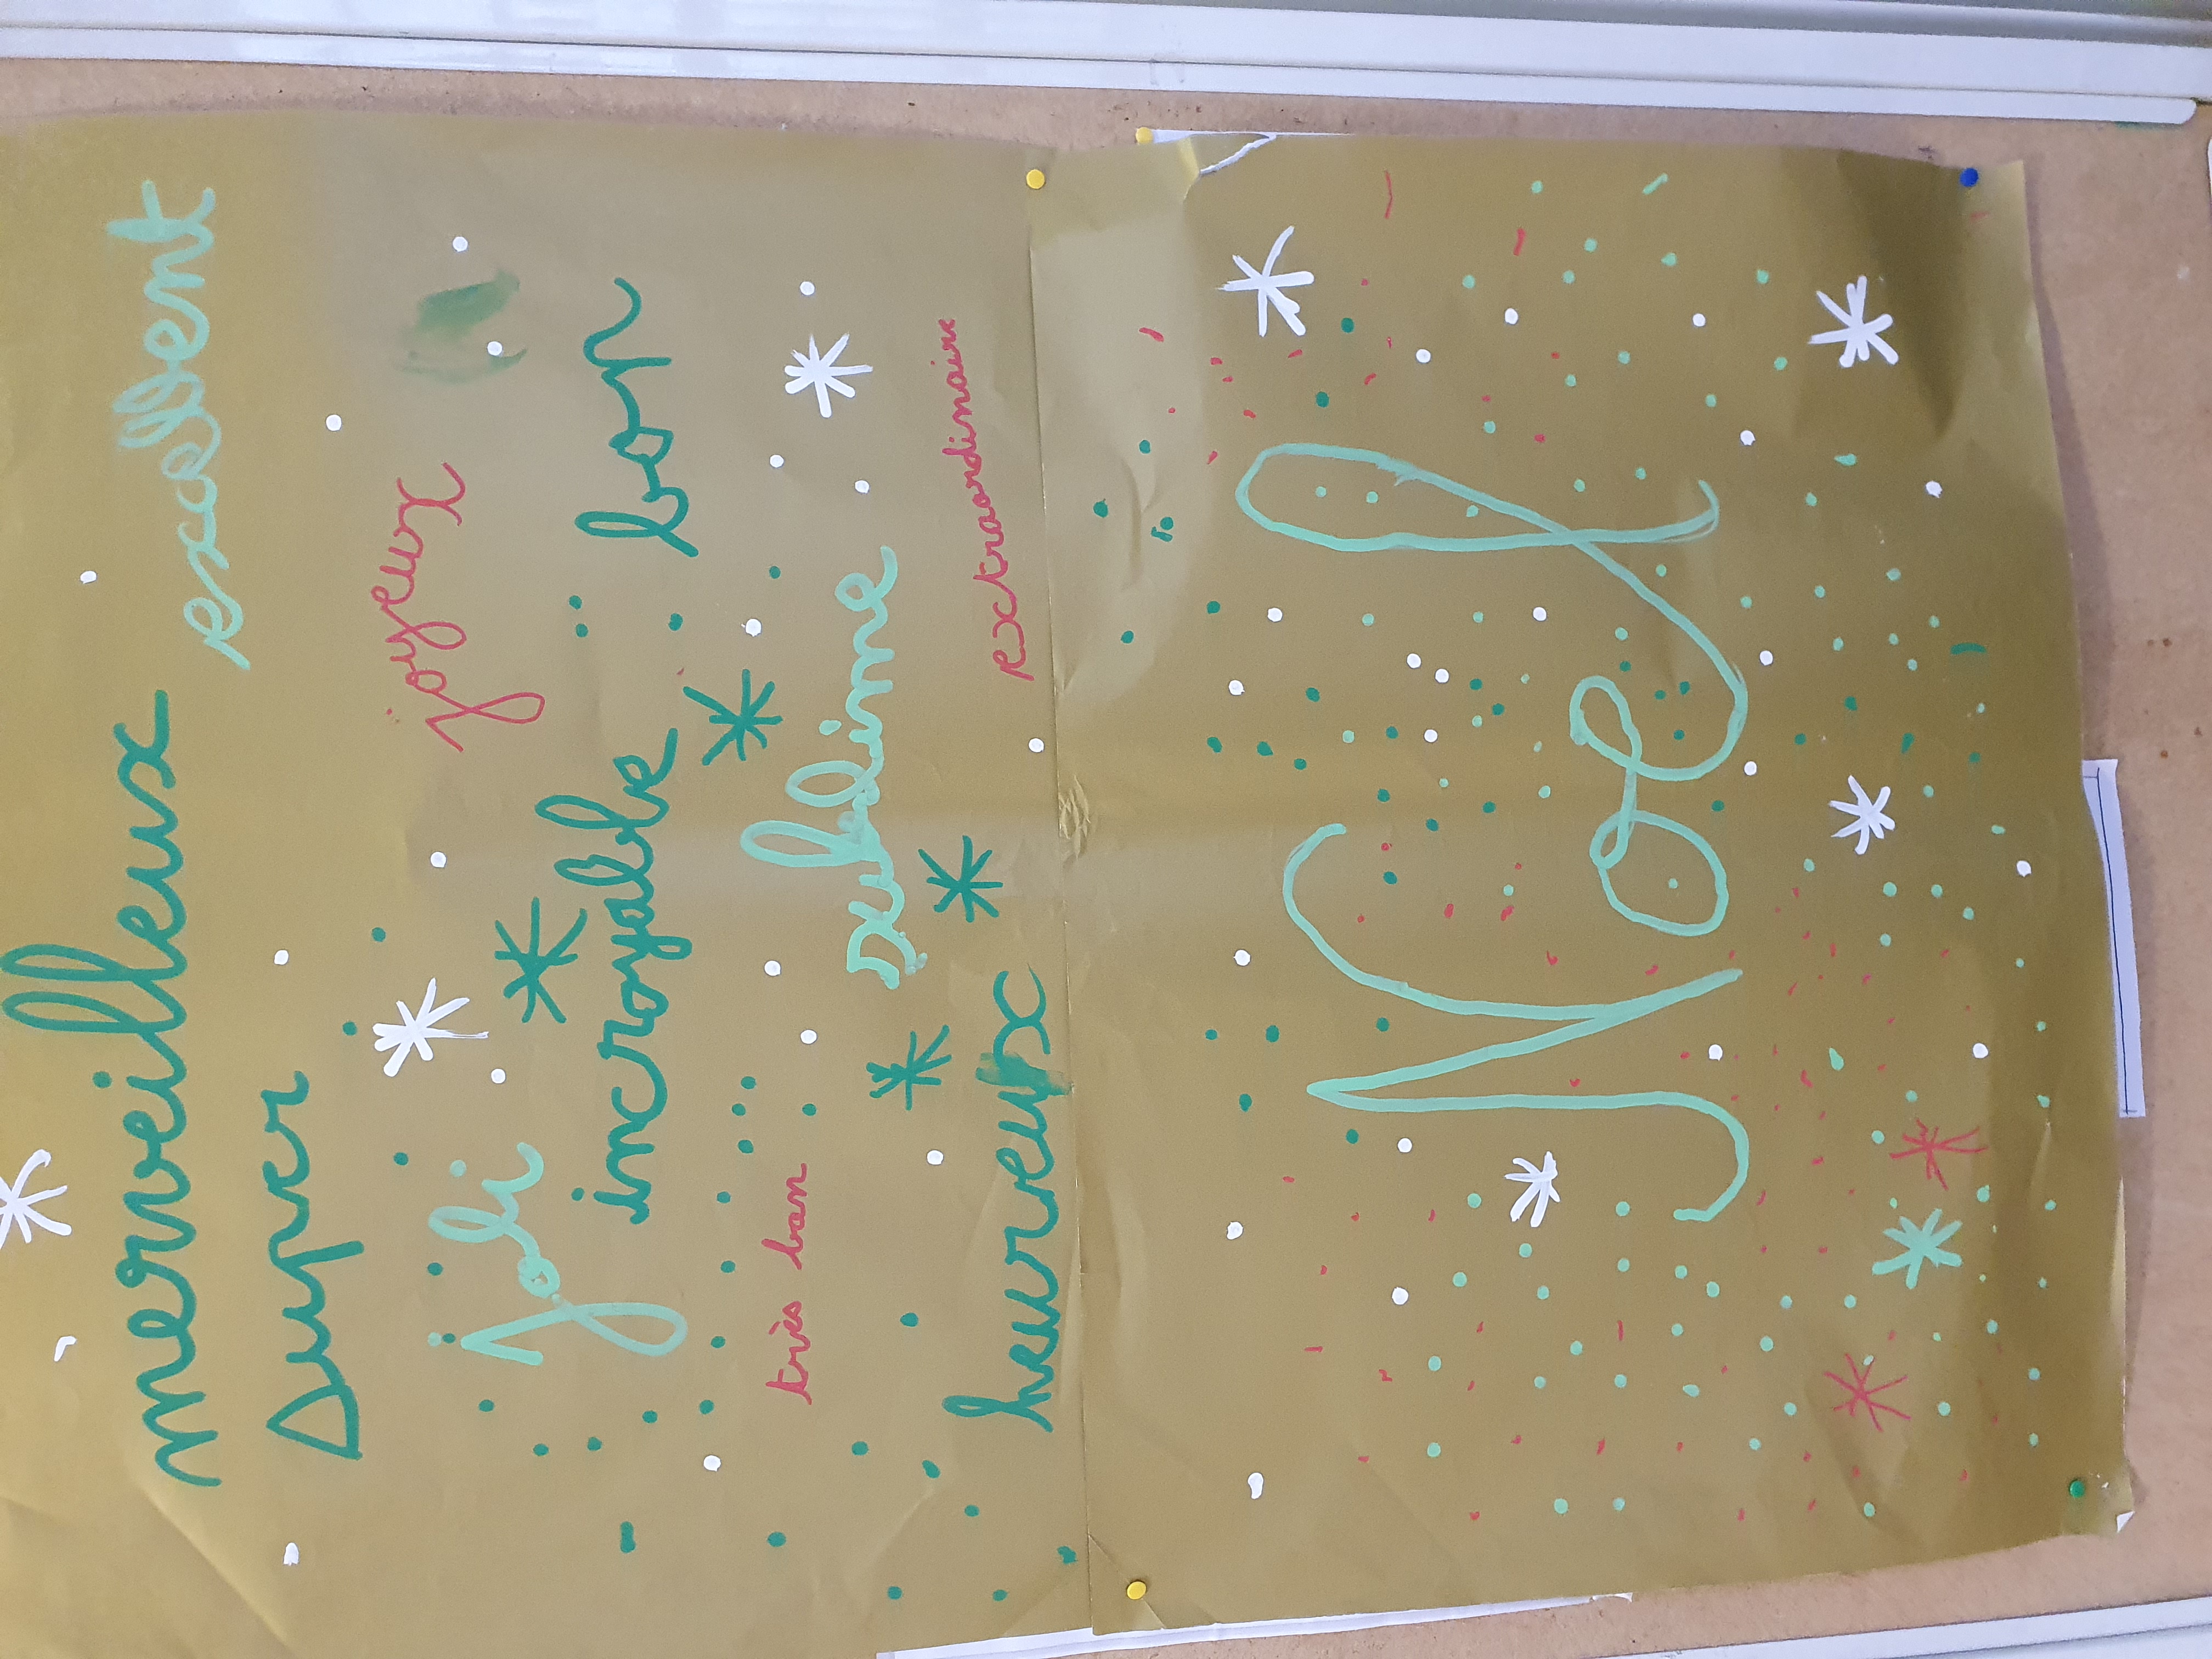 merveilleux excellent
super
joli joyeux
incroyable bon
très bon sublime
heureux extraordinaire
Noel